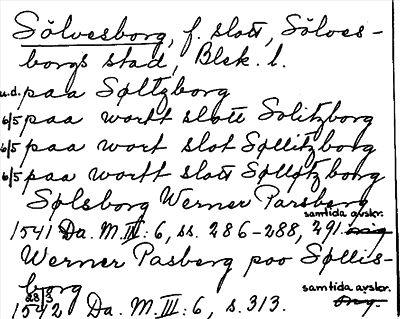 Sölvesborg, f. slott, Sölves-
borgs stad, Blek. l.
u.d. paa Søltzborg
6/5 paa wortt slott Solitzborg
6/5 paa wort slot Søllitzborg
6/5 paa wortt slott Sølløtzborg
Sølsborg Werner Parsberg
samtida avskr.
1541 Da. M. IV: 6, ss. 286-288, 291. orig
Werner Pasberg poo Søllis-
borg
samtida avskr.
28/3
1542 Da. M. III: 6, s. 313. orig.